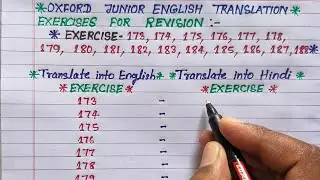 *OXFORD JUNIOR ENGLISH TRANSLATION
EXERCISES FOR REVISION :-
* EXERCISE- 173, 174, 175, 176, 177, 178,
179, 180, 181, 182, 183, 184, 185, 186, 187, 188*
*Translate into English* *Translate into Hindi*
*EXERCISE* *EXERCISE*
173 -
174 -
175 -
176 -
177 -
178 -
179 -